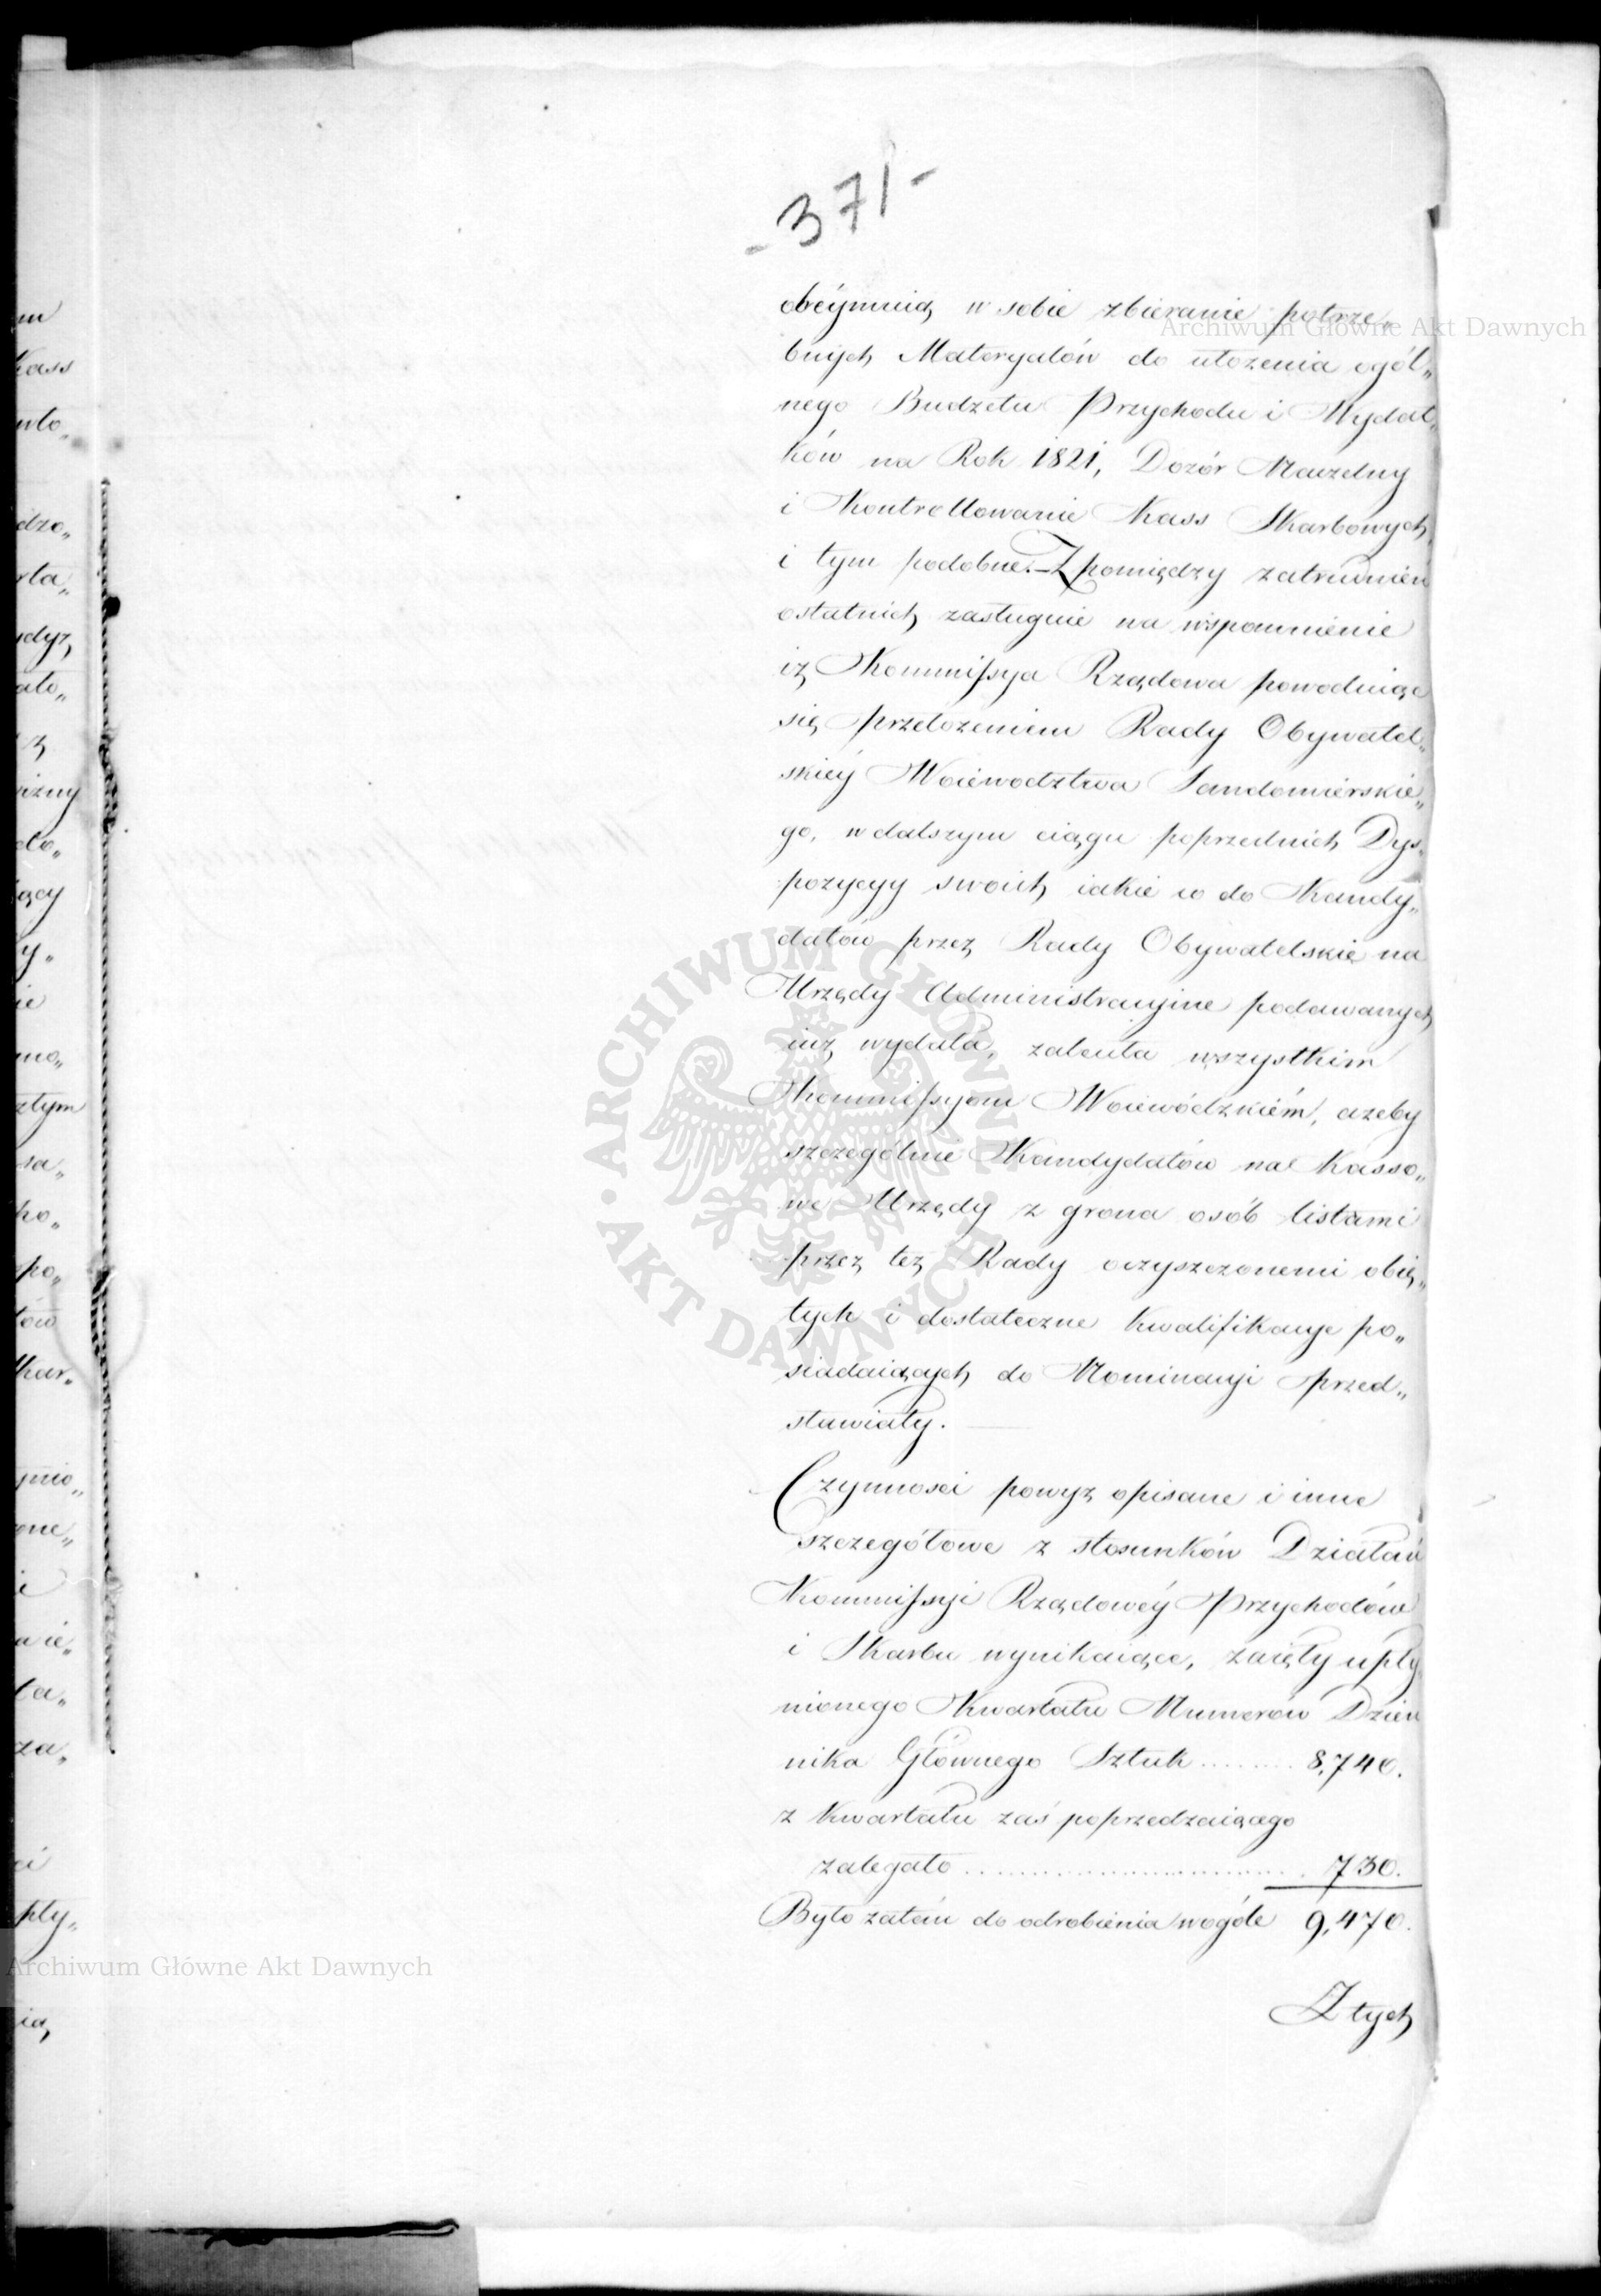 -371-
obeymuią w sobie zbieranie potrze„
bnych Materyałów do ułożenia ogól„
nego Budżetu Przychodu i Wydat„
ków na Rok 1821, Dozór Naczelny
i Kontrollowanie Kass Skarbowych,
i tym podobne. – Z pomiędzy zatrudnień
ostatnich zasługuie na wspomnienie
iż Kommissya Rządowa powoduiąc
się przełożeniem Rady Obywatel„
skiéy Woiewodztwa Sandomierskie„
go, w dalszym ciągu poprzednich Dys„
pozycyy swoich iakie co do Kandy„
datów przez Rady Obywatelskie na
Urzędy Administracyine podawanych
iuż wydała, zaleciła wszystkim
Kommissyom Woiewódzkiém, ażeby
szczególnie Kandydatów na Kasso„
we Urzędy z grona osób listami
przez też Rady oczyszczonemi obię„
tych i dostateczne kwalifikacye po„
siadaiących do Nominacyi przed„
stawiały.
Czynności powyż opisane i inne
szczegółowe z stosunków Działań
Kommissyi Rządowéy Przychodów
i Skarbu wynikaiące, zaięły upły
nionego Kwartału Numerów Dzien
nika Głównego Sztuk ........ 8,740.
z Kwartału zaś poprzedzaiącego
zalegało ........................ 730.
Było zatém do odrobienia wogóle 9,470.
Z tych
Archiwum Główne Akt Dawnych
ARCHIWUM GŁÓWNE AKT DAWNYCH
Archiwum Główne Akt Dawnych